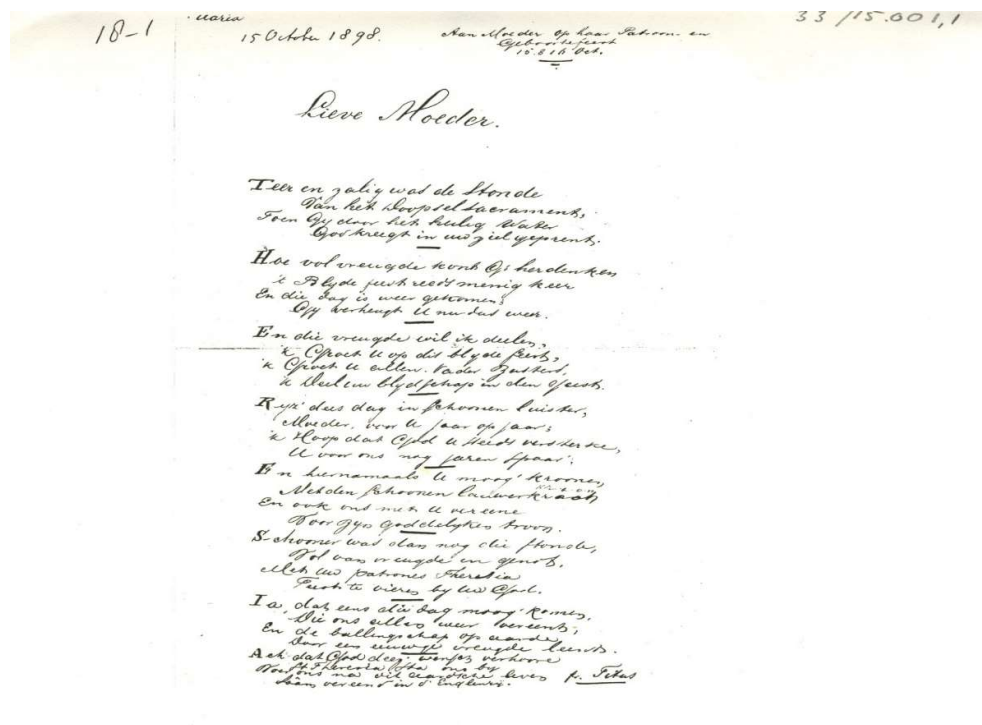 18-1
Maria
33/15.001,1
15 October 1898.
Aan Moeder op haar Patroon- en
Geboortefeest
15 & 16 Oct.
Lieve Moeder.
Teer en zalig was de Stonde
Van het Doopsel sacrament,
Toen Gy door het heilig Water
God kreegt in uw ziel geprent.
Hoe vol vreugde kont Gy herdenken
't Blyde feest reeds menig keer
En die dag is weer gekomen;
Gy verheugt U nu dus weer.
En die vreugde wil ik deelen,
'k Groet U op dit blyde feest,
'k Groet U allen. Vader Zusters,
'k Deel uw blydschap in den Geest.
Ryz' dees dag in schoonen luister,
Moeder, voor U jaar op jaar;
'k Hoop dat God U steeds versterke,
U voor ons nog jaren spaar';
En hiernamaals U moog' kroonen
Met den schoonen lauwerkrans
En ook ons met U vereene
Voor Zyn goddelyken troon.
Schooner was dan nog die stonde,
Vol van vreugde en genot,
Met uw patrones Theresia
Feest te vieren by uw God.
Ia, dat eens die dag moog' komen,
Die ons allen weer vereent,
En de ballingschap op aarde,
Door een eeuwge vreugde
Ach dat God deez' wensch verhoore
St Theresia sta ons by
ons na dit aardsche leven
Saam vereend in d'
fr. Titus